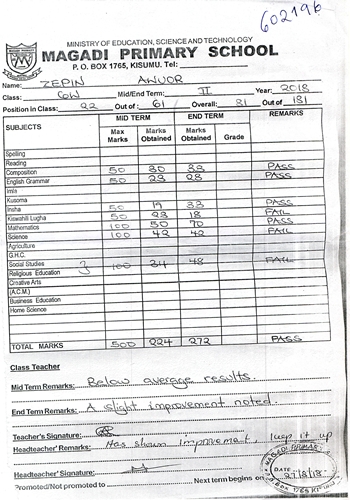 602196
MINISTRY OF EDUCATION, SCIENCE AND TECHNOLOGY
MAGADI PRIMARY SCHOOL
P. O. BOX 1765, KISUMU. Tel:
Name: ZEPIN ANUOR
Class: 6W Mid/End Term: II Year: 2018
Position in Class: 22 Out of: 61 Overall: 81 Out of 181
SUBJECTS MID TERM END TERM REMARKS
Max Marks Marks Obtained Marks Obtained Grade
Spelling
Reading
Composition 50 30 33 PASS
English Grammar 50 23 28 PASS
Imla
Kusoma
Insha 50 19 33 PASS
Kiswahili Lugha 50 23 18 FAIL
Mathematics 100 50 70 PASS
Science 100 42 42 FAIL
Agriculture
G.H.C.
Social Studies 100 34 48 FAIL
Religious Education
Creative Arts
(A.C.M.)
Business Education
Home Science
TOTAL MARKS 500 224 272 PASS
Class Teacher
Mid Term Remarks: Below average results.
End Term Remarks: A slight improvement noted.
Teacher's Signature:
Headteacher' Remarks: Has shown improvement, keep it up
MAGADI PRIMARY
Headteacher' Signature:
DATE 27/8/18
Promoted/Not promoted to Next term begins on